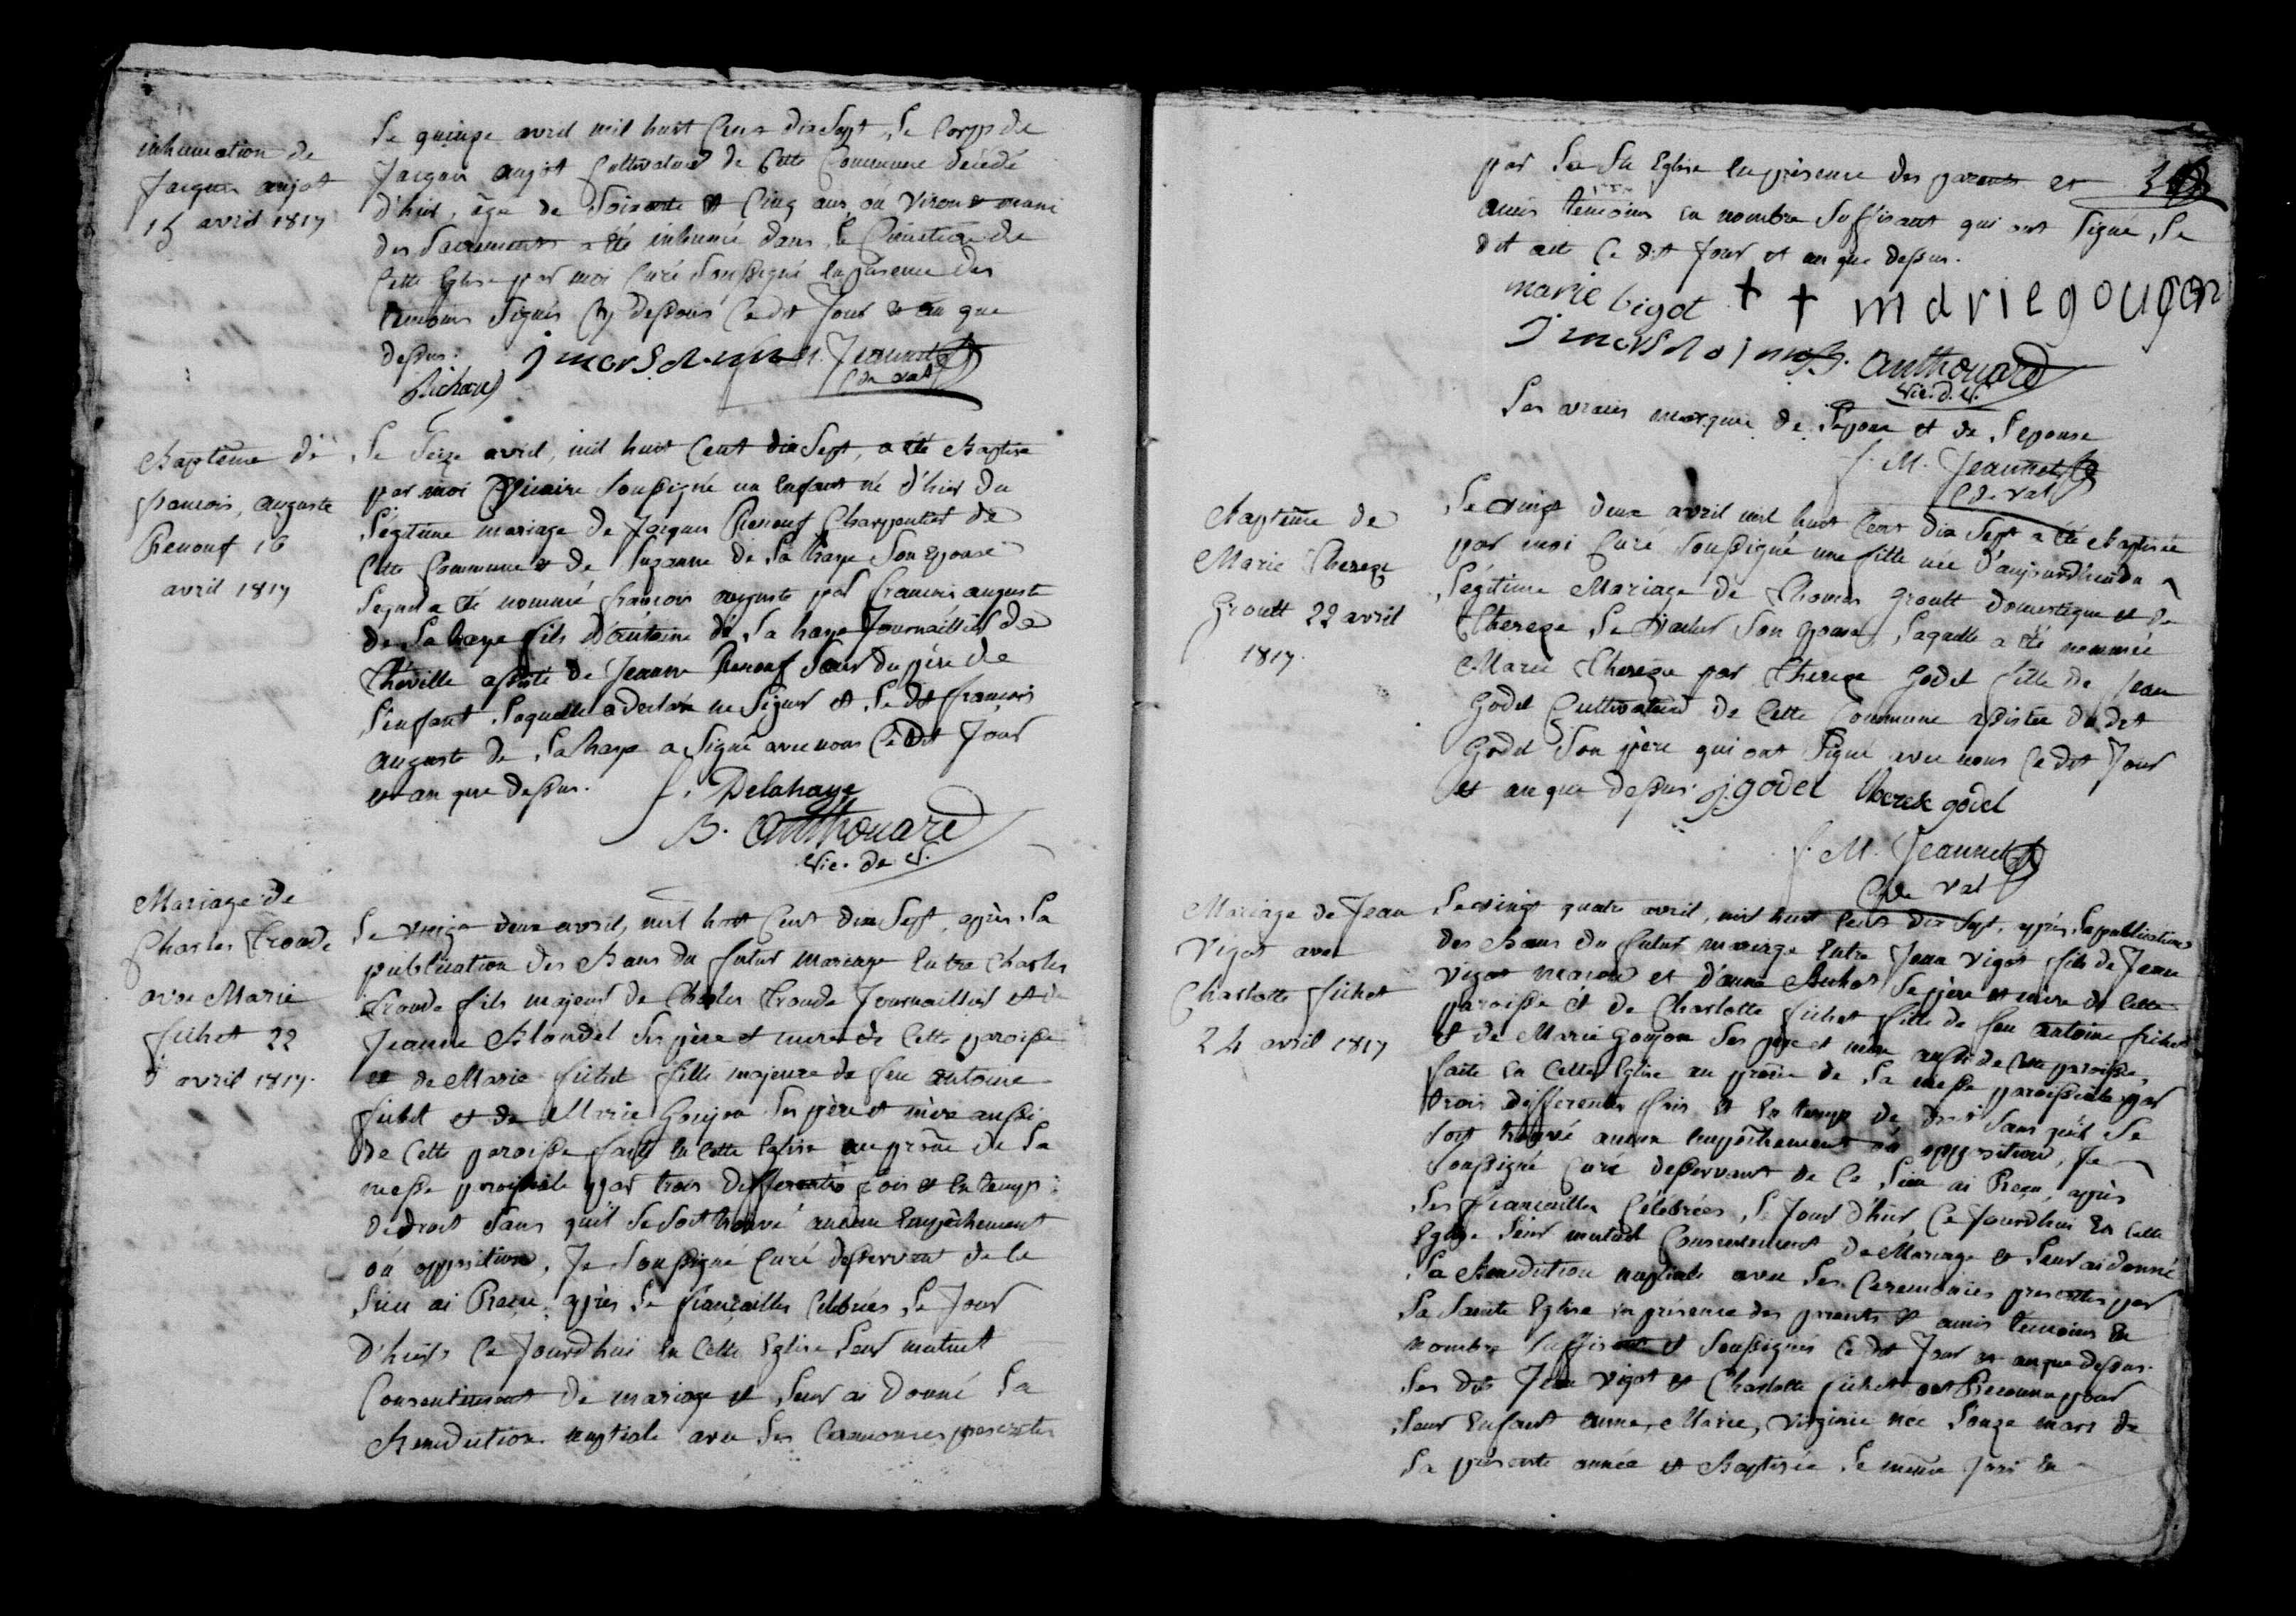 inhumation de
Jacques anjot
15 avril 1817
Le quinze avril mil huit Cent dix Sept, le Corps de
Jacques anjot Cultivateur de Cette Commune décédé
d'hier, âgé de Soixante et Cinq ans, ou viron et muni
des Sacrements a été inhumé dans le Cimetiere de
Cette Eglise par moi Curé Soussigné en présence des
témoins Signés Cy dessous Ce dit Jour et an que
dessus.
Richard
f. M. Jeannet
C de val
Baptême de
francois, auguste
Renouf 16
avril 1817
Le Seize avril, mil huit Cent dix Sept, a été Baptisé
par moi Vicaire Soussigné un Enfant né d'hier du
Légitime mariage de Jacques Renouf Charpentier de
Cette Commune et de Suzanne de La haye Son Epouse
Lequel a été nommé francois auguste par francois auguste
de La haye fils d'antoine de La haye Journaillier de
Théville assisté de Jeanne Renouf Sœur du père de
L'enfant, Laquelle a déclaré ne Signer et Le dit francois
auguste de La haye a Signé avec nous Ce dit Jour
et an que dessus.
f. Delahaye
B. Anthouard
Vic. de V.
Mariage de
Charles Troude
avec Marie
fichet 22
avril 1817.
Le vingt deux avril, mil huit Cent dix Sept, après La
publication des Bans du futur mariage Entre Charles
Troude fils majeur de Charles Troude Journaillier et de
Jeanne Blondel Ses père et mère de Cette paroisse
et de Marie fichet fille majeure de feu antoine
fichet et de Marie Goujon Ses père et mère aussi
de Cette paroisse faite En Cette Eglise au prône de La
messe paroissiale par trois differentes fois et En temps
de droit Sans qu'il Se Soit trouvé aucun Empêchement
ou opposition, Je Soussigné Curé desservant de Ce
Lieu ai Reçu, après Les fiançailles Celebrées Le Jour
d'hier, Ce Jourdhui En Cette Eglise Leur mutuel
Consentement de mariage et Leur ai donné La
Benediction nuptiale avec Les Ceremonies prescrites
par La Ste Eglise En présence des parents et
amis témoins En nombre Suffisant qui ont Signé, Le
dit acte Ce dit Jour et an que dessus.
marie bigot + + marie goujon
B. Anthouard
Vic. d. V.
Les vraies marques de L'epoux et de L'epouse
f. M. Jeannet
C de val
Baptême de
Marie Thereze
Groult 22 avril
1817.
Le vingt deux avril mil huit Cent dix Sept a été Baptisée
par moi Curé Soussigné une fille née d'aujourd'hui du
Légitime Mariage de Thomas Groult domestique et de
Thereze Le Vacher Son Epouse, Laquelle a été nommée
Marie Thereze par Thereze Godel fille de Jean
Godel Cultivateur de Cette Commune assistée du dit
Godel Son père qui ont Signé avec nous Ce dit Jour
et an que dessus. j. godel therese godel
f. M. Jeannet
C de val
Mariage de Jean
Vigot avec
Charlotte fichet
24 avril 1817
Le vingt quatre avril, mil huit Cent dix Sept, après La publication
des Bans du futur mariage Entre Jean Vigot fils de Jean
Vigot macon et d'anne Se père et mère de Cette
paroisse et de Charlotte fichet fille de feu antoine fichet
et de Marie Goujon Ses père et mère aussi de Cette paroisse,
faite En Cette Eglise au prône de La messe paroissiale par
trois differentes fois et En temps de droit Sans qu'il Se
Soit trouvé aucun Empêchement ou opposition, Je
Soussigné Curé desservant de Ce Lieu ai Reçu, après
Les fiançailles Célébrées Le Jour d'hier, Ce Jourdhui En Cette
Eglise Leur mutuel Consentement de Mariage et Leur ai donné
La Benediction nuptiale avec Les Ceremonies prescrites par
La Sainte Eglise En présence des parents et amis témoins En
nombre Suffisant et Soussignés Ce dit Jour et an que dessus.
Les dits Jean Vigot et Charlotte fichet ont Reconnu pour
Leur Enfant anne, Marie, Virginie née L'onze mars de
La présente année et Baptisée Le même Jour En